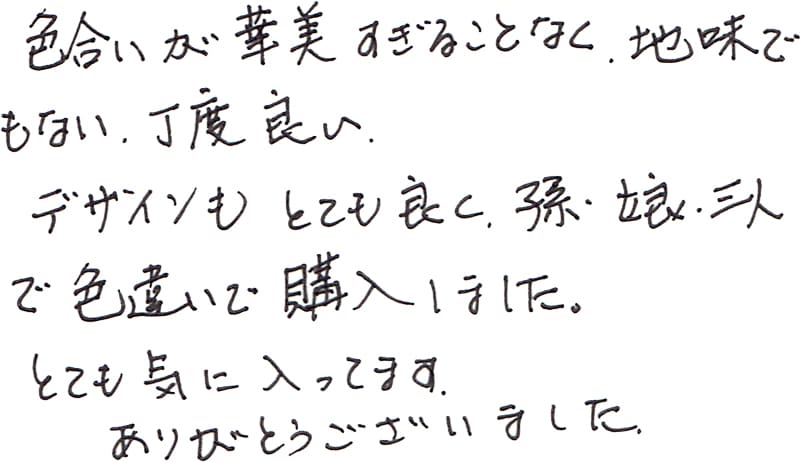 色合いが華美すぎることなく、地味で
もない、丁度良い、
デザインもとても良く、孫・娘・三人
で色違いで購入しました。
とても気に入ってます。
ありがとうございました。